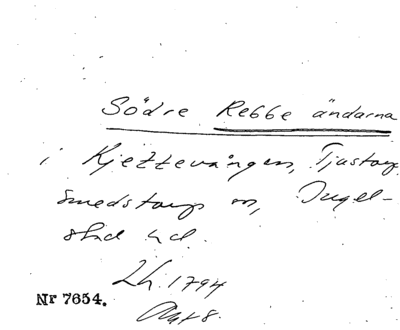 Södre Rebbe ändarna
i Kjettevången, Tjustorp
Smedstorps sn, Ingel-
stad hd.
Lh. 1794
Nr 7654.
Akt 8.